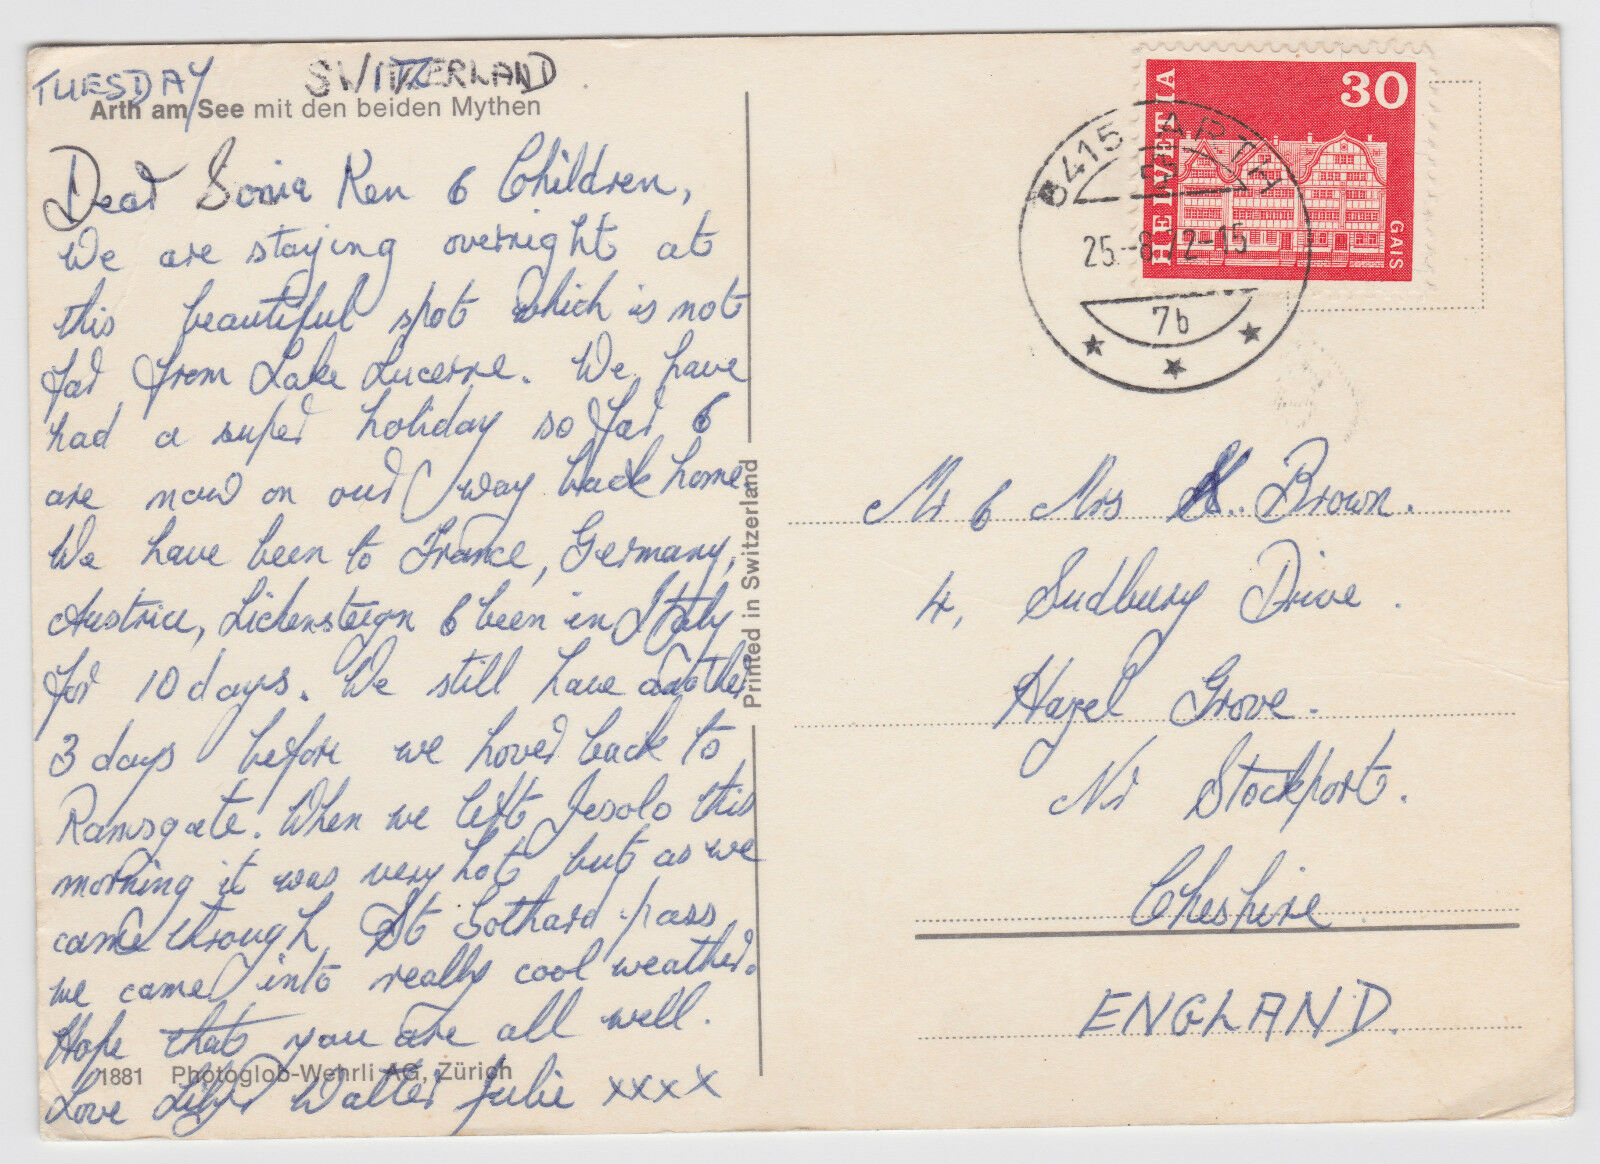 TUESDAY SWITZERLAND
Arth am See mit den beiden Mythen
Dear Sonia Ken & Children,
We are staying overnight at
this beautiful spot which is not
far from Lake Lucerne. We have
had a super holiday so far &
are now on our way back home
We have been to France, Germany,
Austria, Lichensteign & been in Italy
for 10 days. We still have another
3 days before we hover back to
Ramsgate. When we left Jesolo this
morning it was very hot but as we
came through St Gothard pass
we came into really cool weather.
Hope that you are all well.
1881 Photoglob-Wehrli AG, Zürich
Love Walter Julie xxxx
Printed in Switzerland
HELVETIA
30
GAIS
6415 ARTH
25.-8.72-15
7b
Mr & Mrs Brown.
4, Sudbury Drive.
Hazel Grove.
Nr Stockport.
Cheshire
ENGLAND.